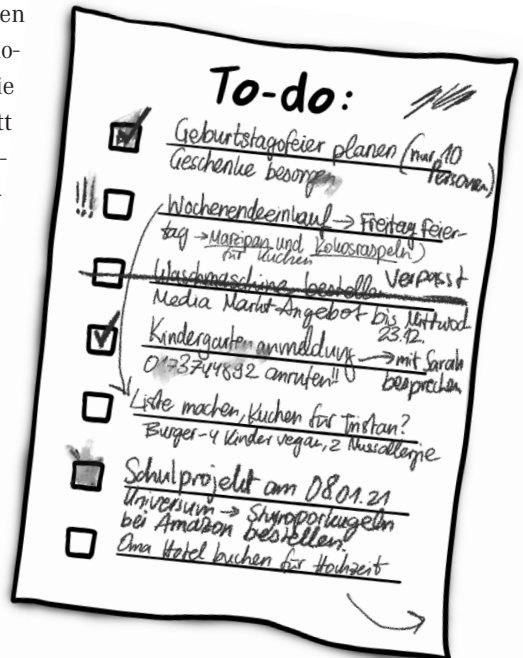 en
o-
ie
tt
-
To-do:
Geburtstagsfeier planen (nur 10 Personen)
Geschenke besorgen
!!! Wochenendeeinkauf → Freitag Feier-
tag → Marzipan und Kokosraspeln)
für Kuchen
Waschmaschine bestellen verpasst
Media Markt-Angebot bis Mittwoch
23.12.
Kindergartenanmeldung → mit Sarah
besprechen
01737444892 anrufen!!
Liste machen, Kuchen für Tristan?
Burger-4 Kinder vegan, 2 Nussallergie
Schulprojekt am 08.01.21
Universum → Styroporkugeln
bei Amazon bestellen.
Oma Hotel buchen für Hochzeit